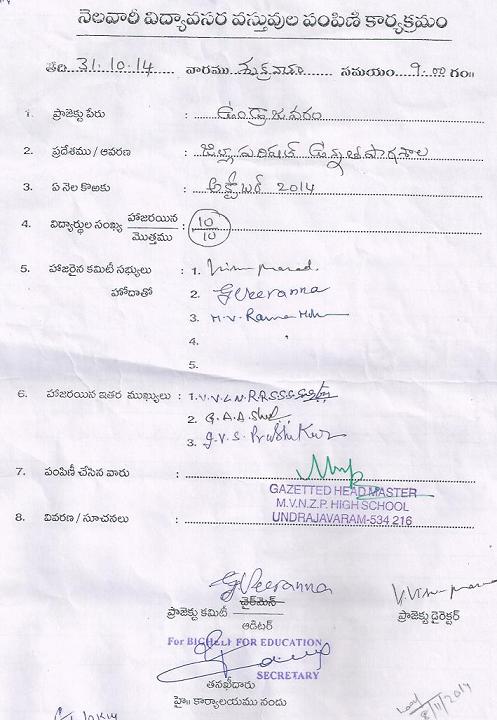 నెలవారీ విద్యావసర వస్తువుల పంపిణి కార్యక్రమం
తేది 31.10.14 వారము శుక్రవారం సమయం 9.00 గం॥
1. ప్రాజెక్టు పేరు : ఉండ్రాజవరం
2. ప్రదేశము / ఆవరణ : జిల్లా పరిషత్ ఉన్నత పాఠశాల
3. ఏ నెల కొఱకు : అక్టోబర్ 2014
4. విద్యార్థుల సంఖ్య హాజరయిన / మొత్తము : 10/10
5. హాజరైన కమిటీ సభ్యులు : 1.
హోదాతో 2. G Veeranna
3. M.V. Rama
4.
5.
6. హాజరయిన ఇతర ముఖ్యులు : 1. V.V.L.N.R.R.S.S.S.
2. G.A.D.
3. G.V.S.
7. పంపిణీ చేసిన వారు :
GAZETTED HEAD MASTER
M.V.N.Z.P. HIGH SCHOOL
UNDRAJAVARAM-534 216
8. వివరణ / సూచనలు :
G Veeranna
ప్రాజెక్టు కమిటీ చైర్‌మెన్ ప్రాజెక్టు డైరెక్టర్
ఆడిటర్
For BIGHELP FOR EDUCATION
SECRETARY
తనఖీదారు
హై॥ కార్యాలయము నందు
8/11/2014